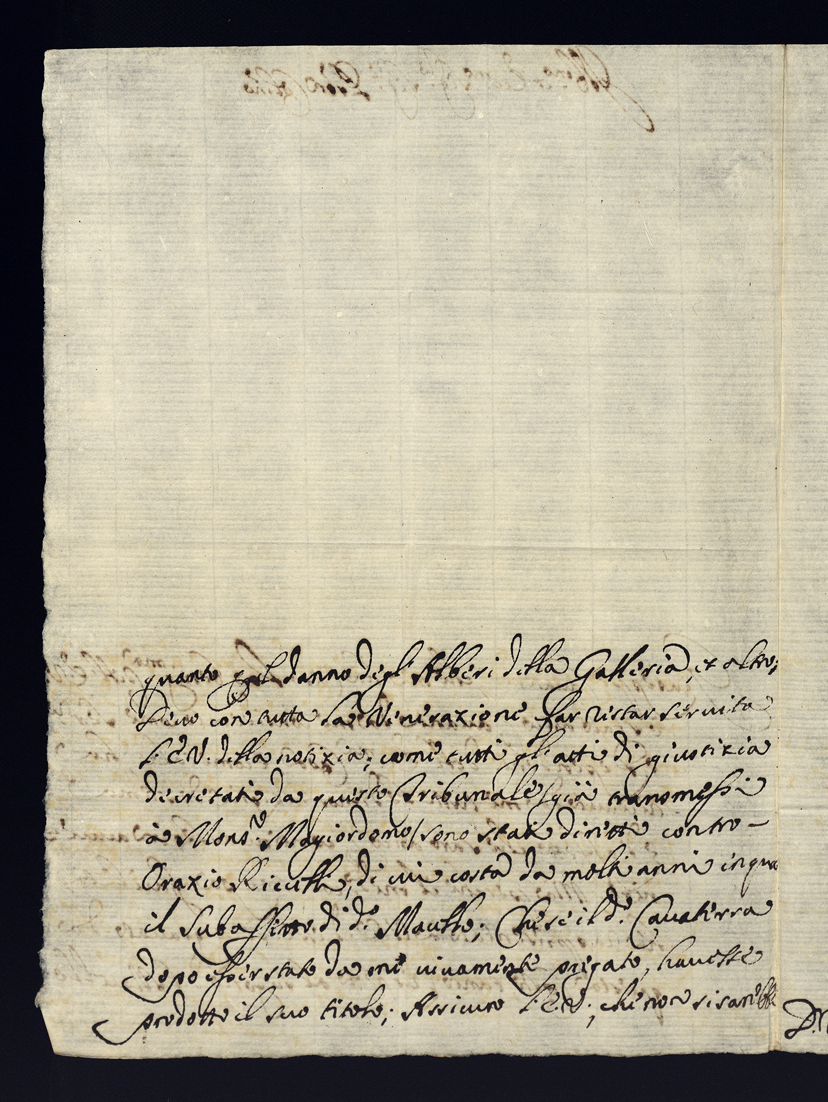 quanto p. il danno degl'Alberi della Galleria, et altro;
Devo con tutta la Venerazione far restar servita
l'E.V. della notizia; come tutti gl'atti di giustizia
decretati da questo Tribunale/già transmessi
à Mons.r Magiordomo/sono stati diretti contro-
Orazio Ricutti, di cui costa da molti anni in qua
il Subaffitto di d.o Mautte; Che se il d.o Cavaterra
dopo esser stato da mè vivamente pregato, havesse
prodotto il suo titolo; Assicuro l'E.V., che non si sarebbe